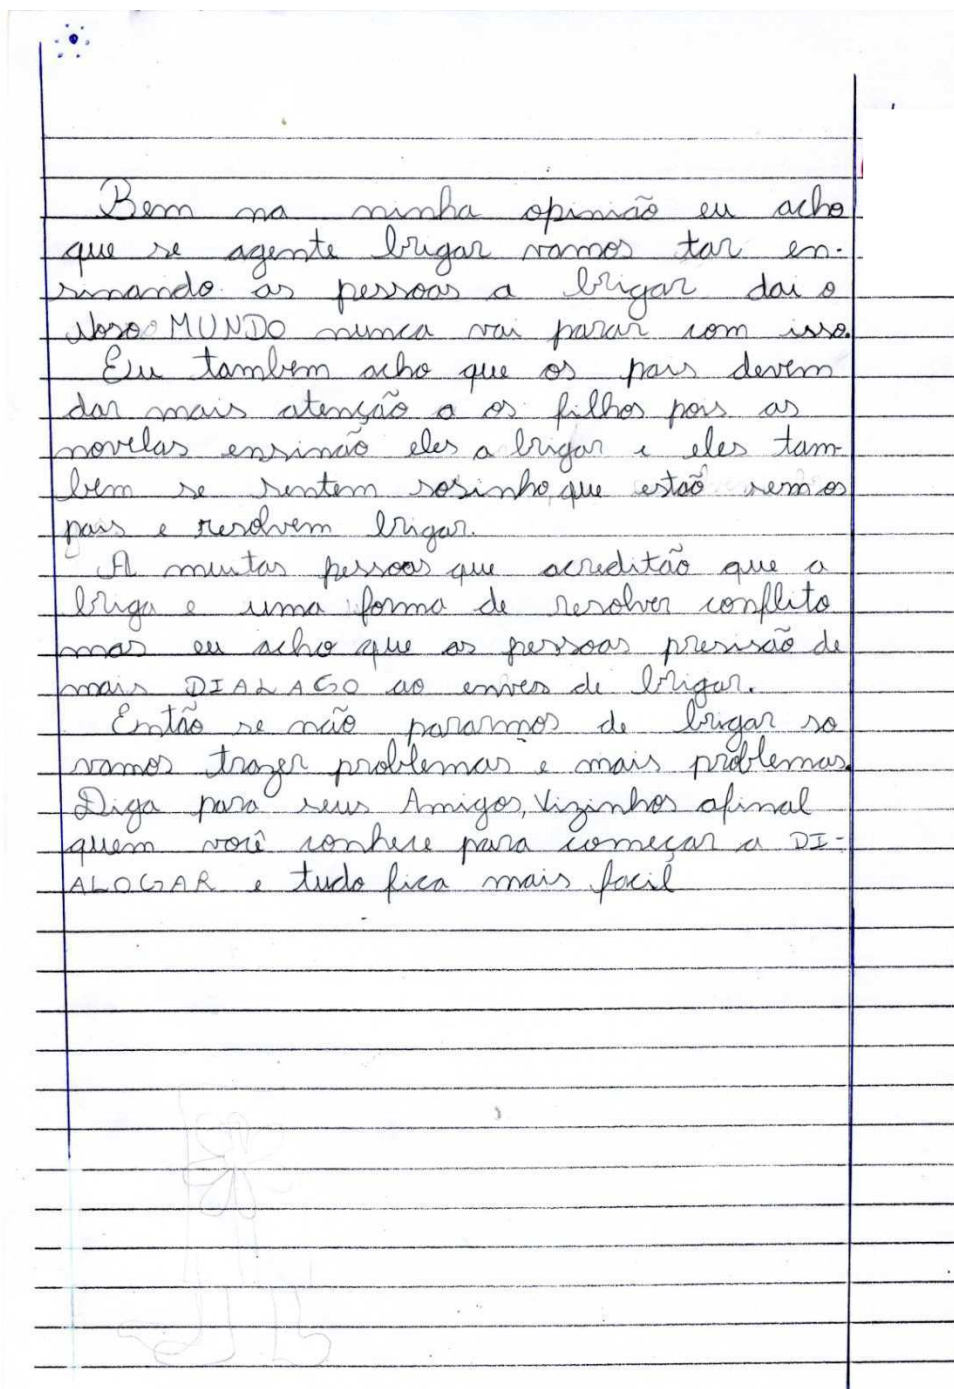 Bem na minha opinião eu acho
que se agente brigar vamos tar en-
sinando as pessoas a brigar dai o
Noso MUNDO nunca vai parar com isso.
Eu tambem acho que os pais devem
dar mais atenção a os filhos pois as
novelas ensinão eles a brigar e eles tam-
bem se sentem sosinho, que estão sem os
pais e resolvem brigar.
A muitas pessoas que acreditão que a
briga e uma forma de resolver conflito
mas eu acho que as pessoas presisão de
mais DIALAGO ao enves de brigar.
Então se não pararmos de brigar so
vamos trazer problemas e mais problemas.
Diga para seus Amigos, Vizinhos afinal
quem você conhece para começar a DI-
ALOGAR e tudo fica mais facil